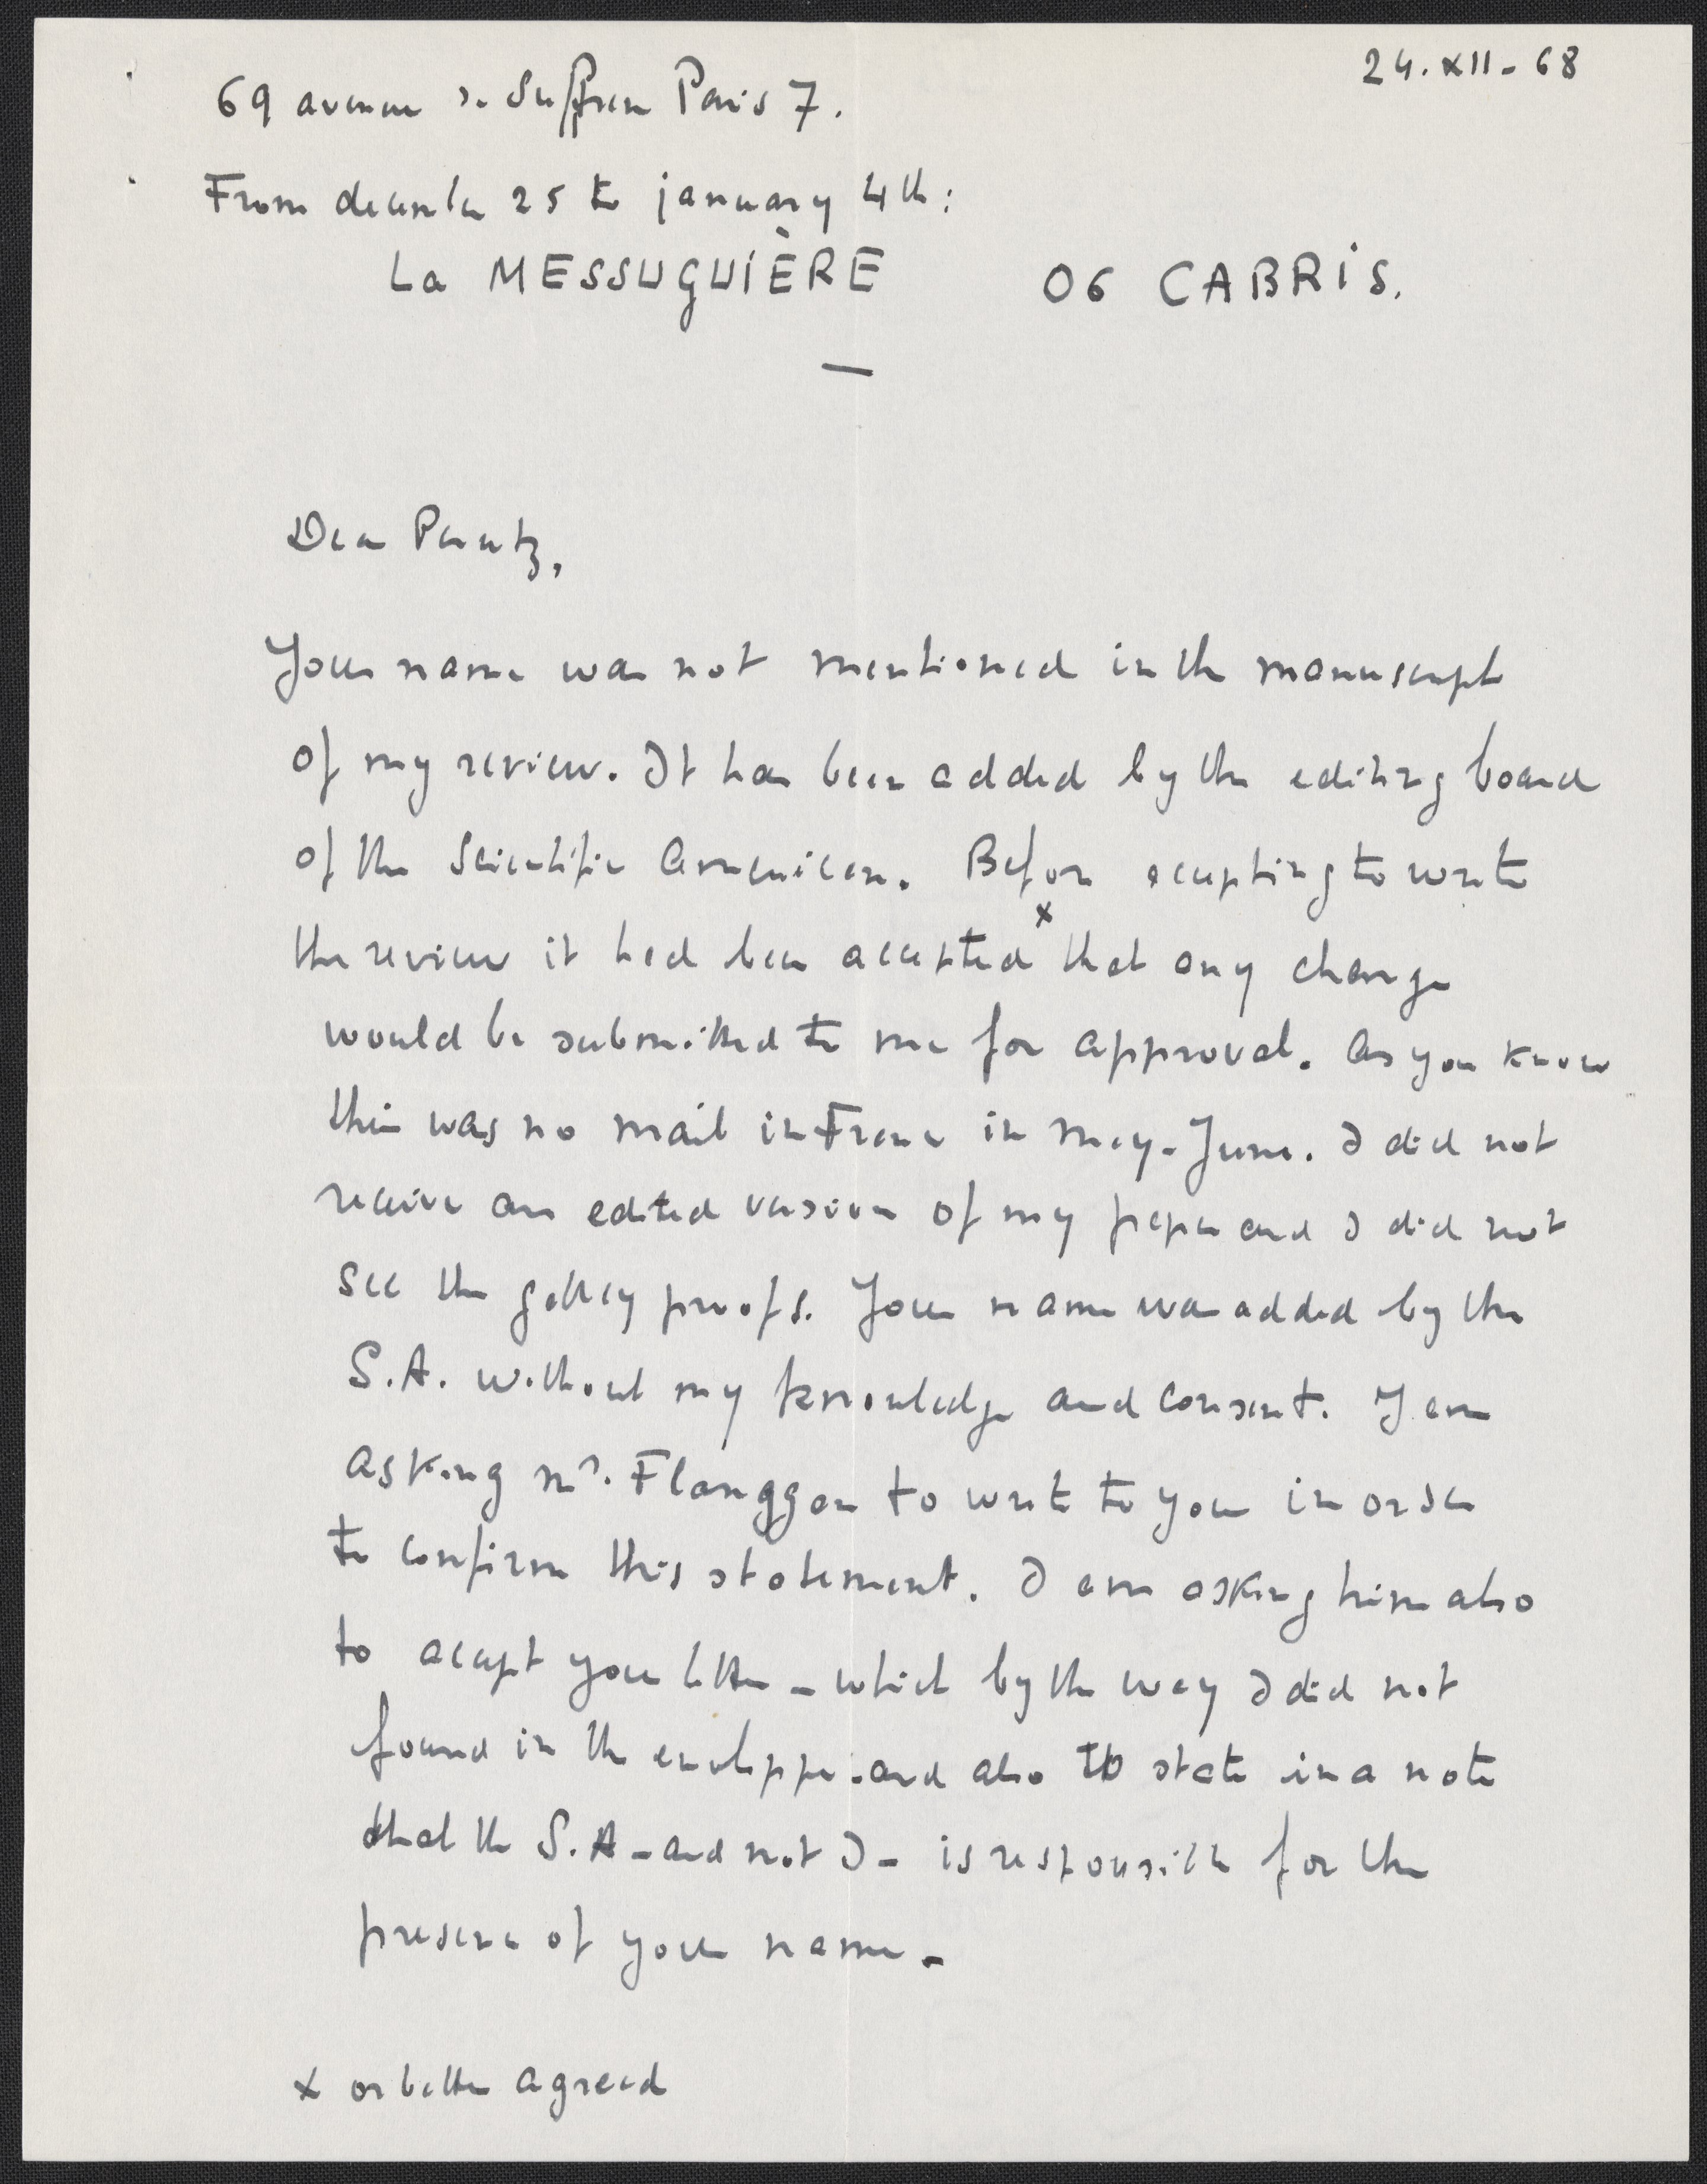 24.XII-68
69 avenue de Suffren Paris 7.
From december 25 to january 4th:
La MESSUGUIÈRE 06 CABRIS.
—
Dear Perutz,
Your name was not mentioned in the manuscript
of my review. It has been added by the editing board
of the Scientific American. Before accepting to write
the review it had been accepted x that any change
would be submitted to me for approval. As you know
their was no mail in France in May-June. I did not
receive an edited version of my paper and I did not
see the galley proofs. Your name was added by the
S.A. without my knowledge and consent. I am
asking Mr. Flanggan to write to you in order
to confirm this statement. I am asking him also
to accept your letter - which by the way I did not
found in the enveloppe - and also to state in a note
that the S.A - and not I - is responsible for the
presence of your name -
x or better agreed